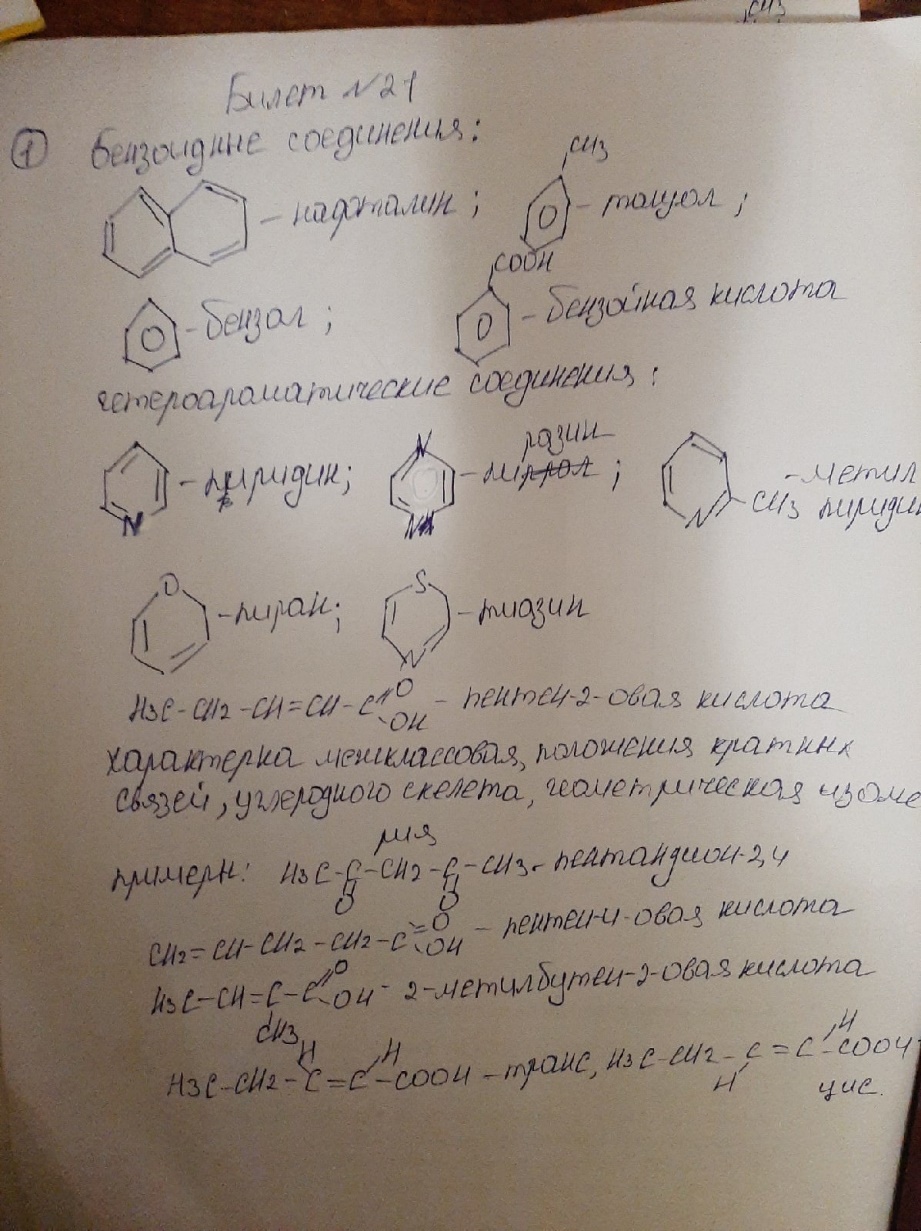 CH3
Билет №21
① Бензоидные соединения:
CH3
- нафталин; - толуол;
COOH
- бензол; - бензойная кислота
гетероароматические соединения:
N разин
- пиридин; - пиррол; - метил
N N N CH3 пиридин
O S
- пиран; - тиазин
N
H3C-CH2-CH=CH-C=O OH - пентен-2-овая кислота
характерна межклассовая, положения кратных
связей, углеродного скелета, геометрическая изоме
рия
примеры: H3C-C-CH2-C-CH3 - пентандион-2,4
O O
CH2=CH-CH2-CH2-C=O OH - пентен-4-овая кислота
H3C-CH=C-C=O OH - 2-метилбутен-2-овая кислота
CH3
H H H
H3C-CH2-C=C-COOH - транс, H3C-CH2-C=C-COOH
H цис.